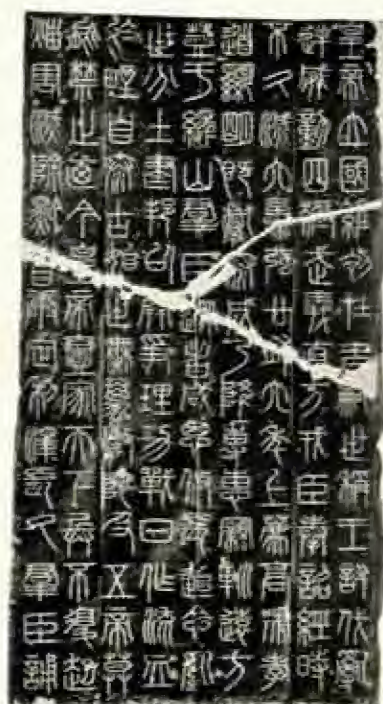 皇帝立國維初在昔嗣世稱王討伐亂
逆威動四極武義直方戎臣奉詔經時
不久滅六暴強廿有六年上薦高廟孝
道顯明既獻泰成乃降專惠親巡遠方
登于繹山群臣從者咸思攸長追念亂
世分土建邦以開爭理功戰日作流血
於野自泰古始世無萬數陀及五帝莫
能禁止迺今皇帝壹家天下兵不復起
災害滅除黔首康定利澤長久群臣誦